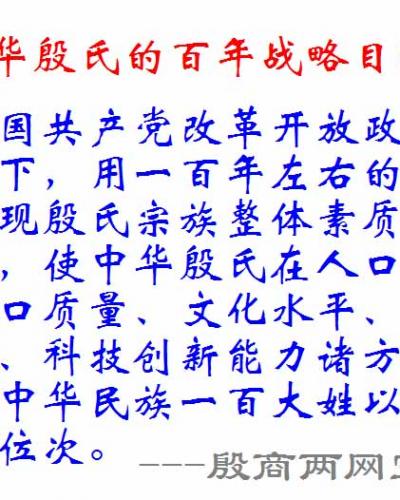 华殷氏的百年战略目
国共产党改革开放政
下，用一百年左右的
现殷氏宗族整体素质
，使中华殷氏在人口
口质量、文化水平、
、科技创新能力诸方
中华民族一百大姓以
位次。 ---殷商两网